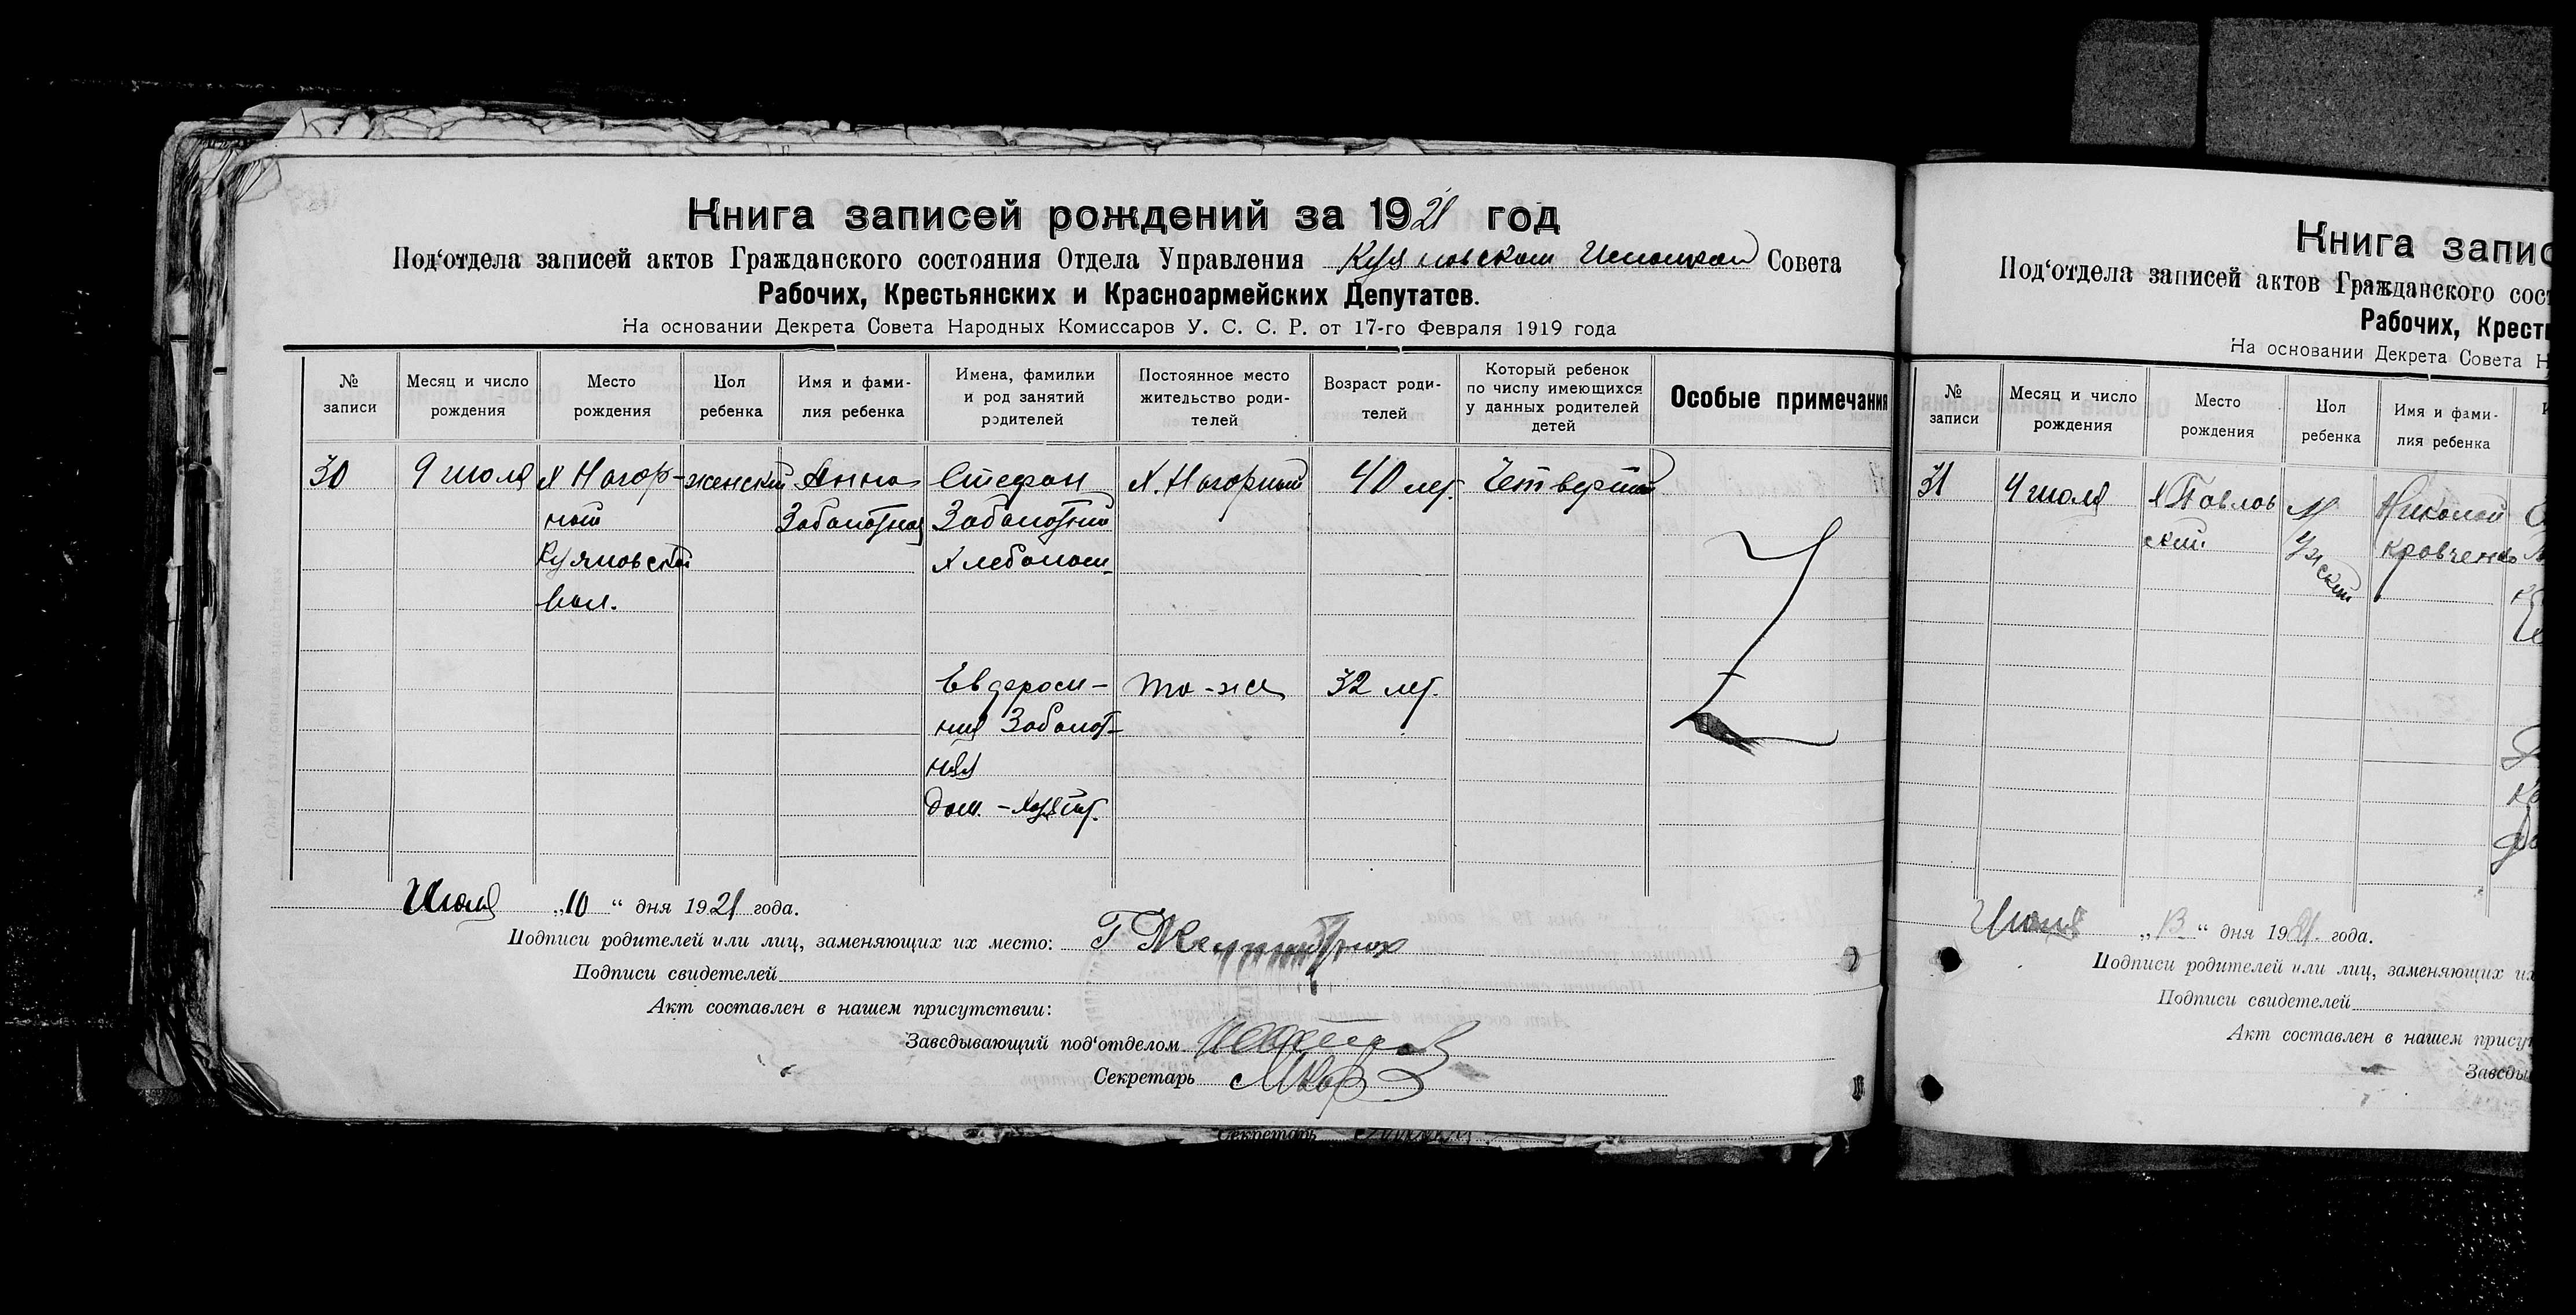 Книга записей рождений за 1921 год
Под‘отдела записей актов Гражданского состояния Отдела Управления Совета
Рабочих, Крестьянских и Красноармейских Депутатов.
На основании Декрета Совета Народных Комиссаров У. С. С. Р. от 17-го Февраля 1919 года
№ записи
Месяц и число рождения
Место рождения
Пол ребенка
Имя и фами-
лия ребенка
Имена, фамилки
и род занятий
родителей
Постоянное место
жительство роди-
телей
Возраст роди-
телей
Который ребенок
по числу имеющихся
у данных родителей
детей
Особые примечания
30
9 июля
х Нагор-
ный
Куяновской
вол.
женский
Анна
Заболотная
Стефан
Заболотний
Хлебопаш.
Х. Нагорный
40 лет.
Четвертый
Евфроси-
ния Заболот-
ная
дом. - хозяйт.
то-же
32 лет.
Июля „10“ дня 1921 года.
Подписи родителей или лиц, заменяющих их место:
Подписи свидетелей
Акт составлен в нашем присутствии:
Заведывающий под‘отделом
Секретарь
Секретарь
Книга запис
Под‘отдела записей актов Гражданского сост
Рабочих, Крест
На основании Декрета Совета Н
№ записи
Месяц и число
рождения
Место
рождения
Пол
ребенка
Имя и фами-
лия ребенка
31
4 июля
х Павлов
ский.
М
ужский
Николай
Кравченко
Июля „13“ дня 1921 года.
Подписи родителей или лиц, заменяющих их
Подписи свидетелей
Акт составлен в нашем присут
Заведы